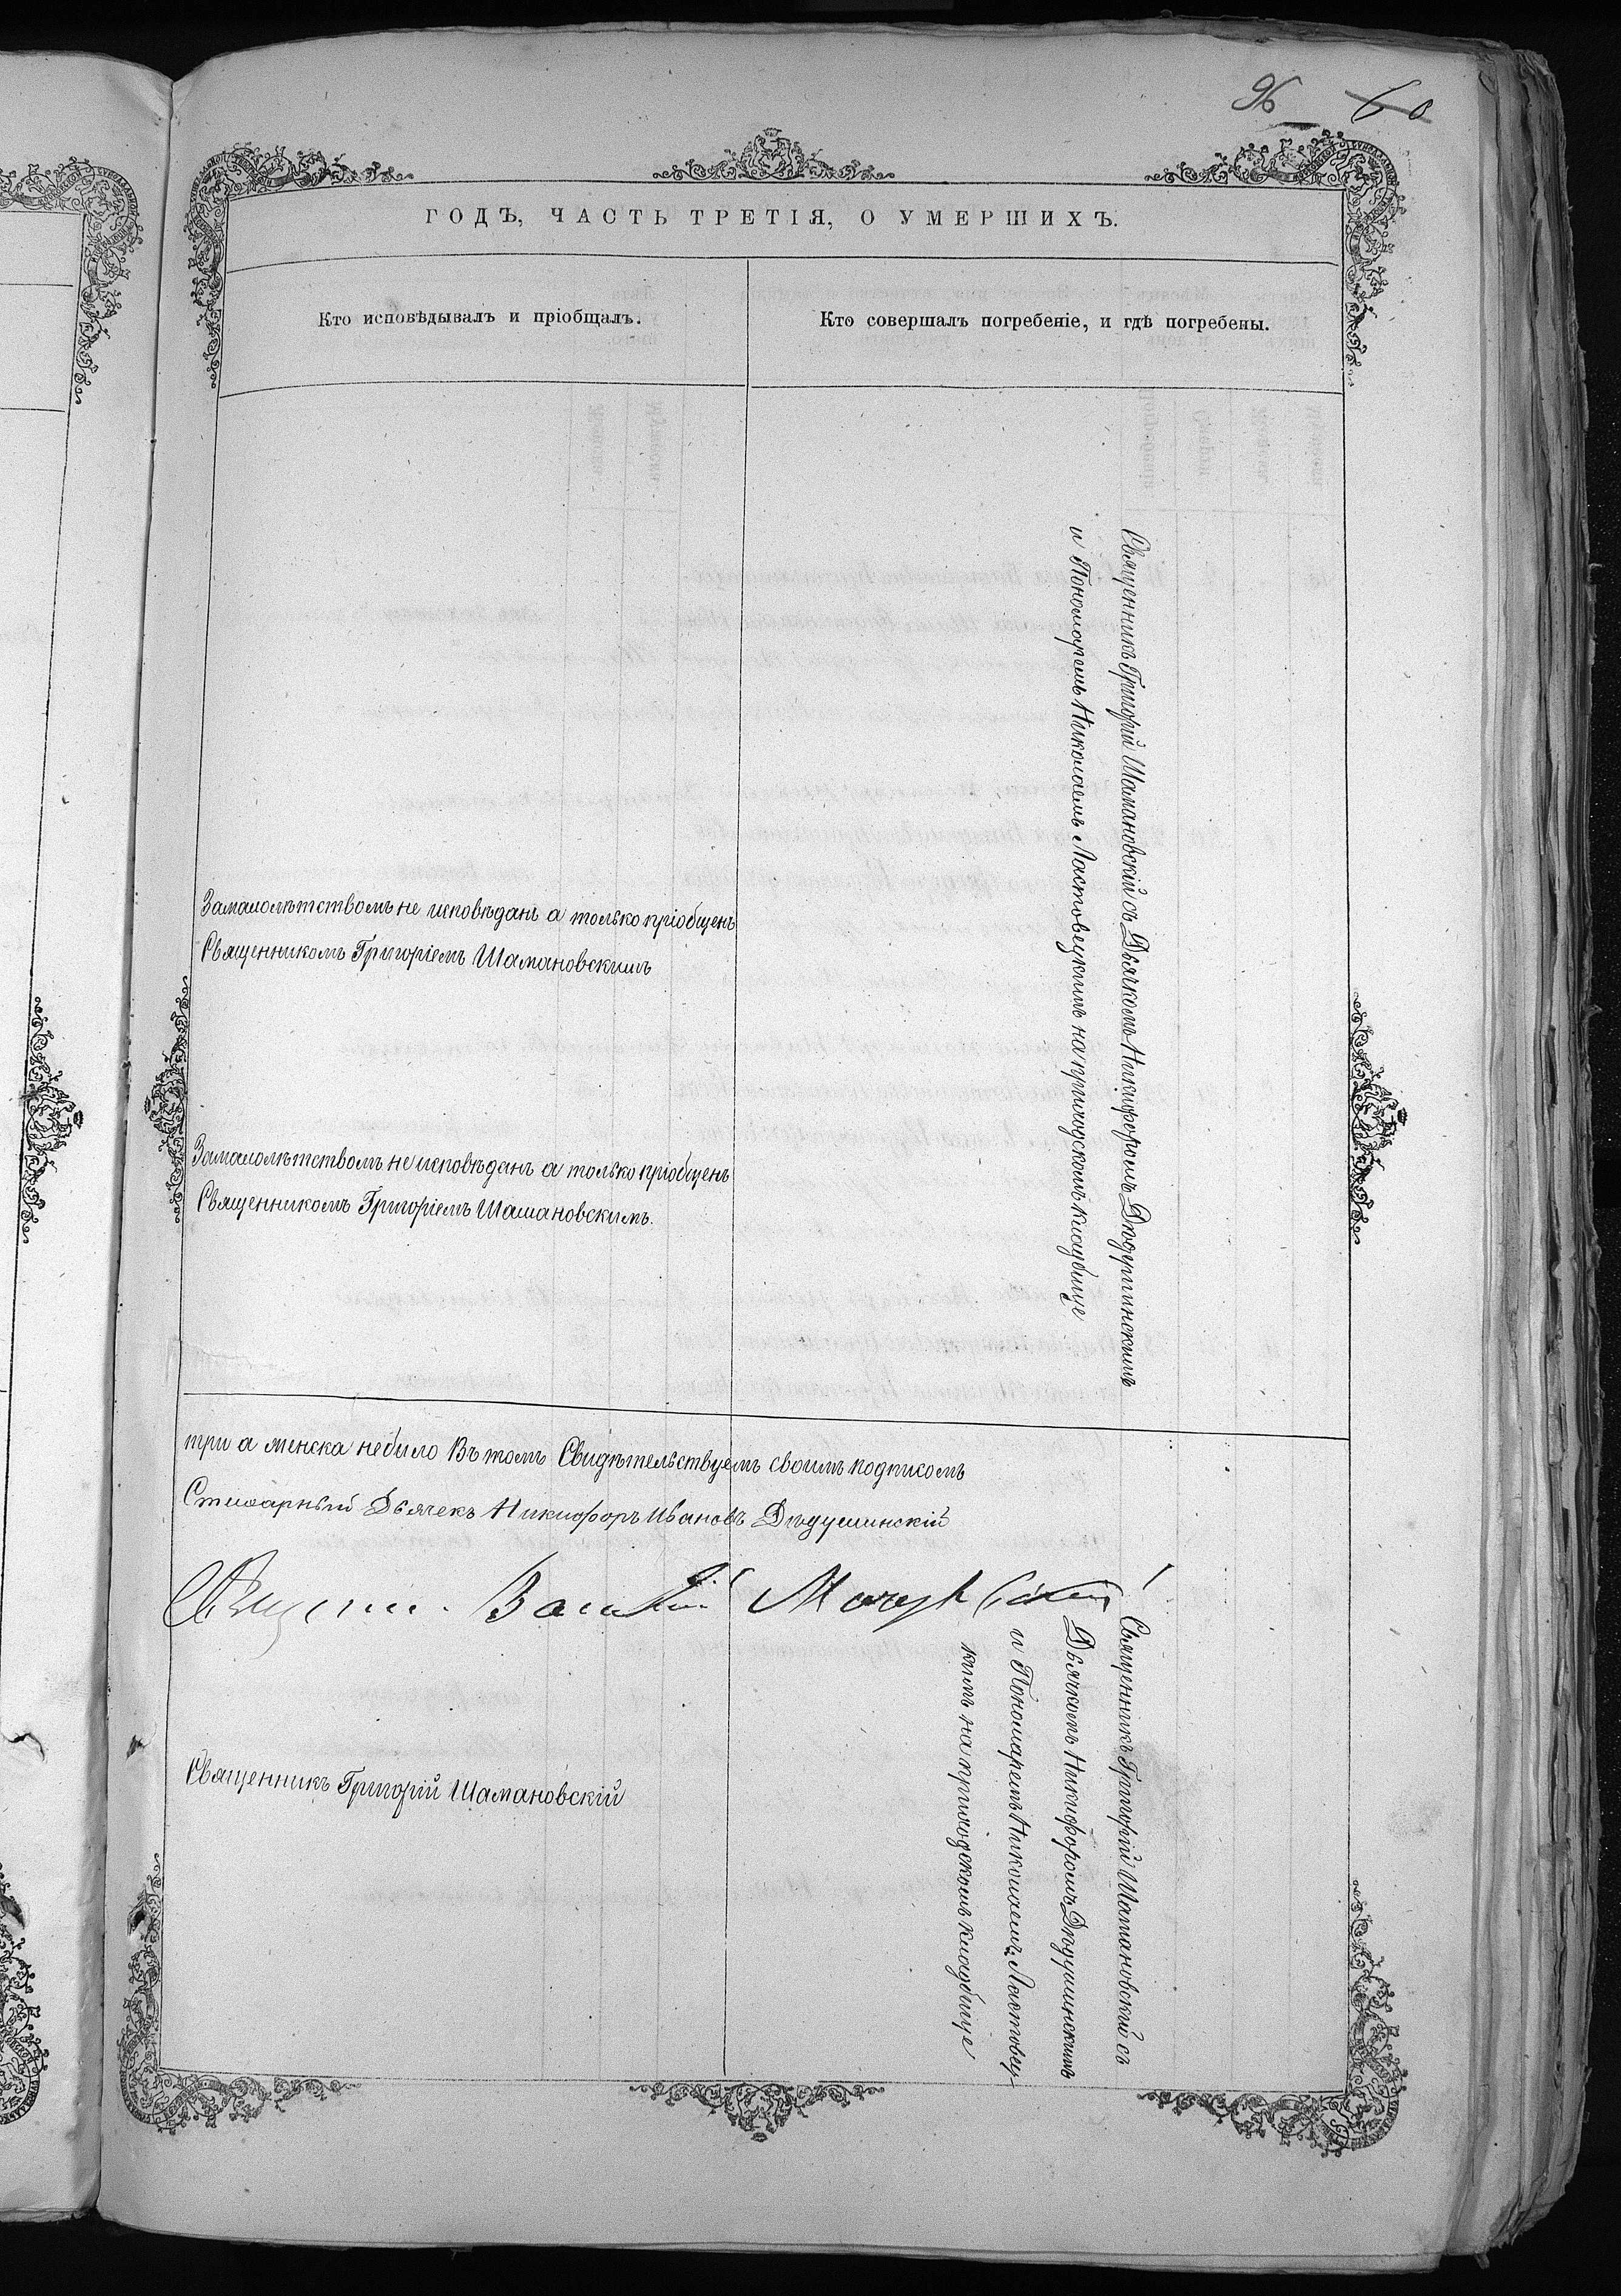 96 60
ГОДЪ, ЧАСТЬ ТРЕТІЯ, О УМЕРШИХЪ.
Кто исповѣдывалъ и пріобщалъ.
Кто совершалъ погребеніе, и гдѣ погребены.
Замалолѣтствомъ не исповѣданъ а только пріобщенъ
Священникомъ Григоріемъ Шамановскимъ
Замалолѣтствомъ не исповѣданъ а только пріобщенъ
Священникомъ Григоріемъ Шамановскимъ.
Священникъ Григорій Шамановскій съ Дьячкомъ Никифоромъ
и Пономаремъ Николаемъ Ластовецкимъ на приходскомъ кладбище
три а женска небило Въ томъ Свидѣтельствуемъ своимъ подписомъ
Стихарный Дьячекъ Никифоръ Ивановъ Дѣдушинскій
Священ.
Священникъ Григорій Шамановскій
Священникъ Григорій Шамановскій съ
Дьячкомъ Никифоромъ Дѣдушинскимъ
и Пономаремъ Николаемъ Ластовец-
кимъ на приходскомъ кладбище